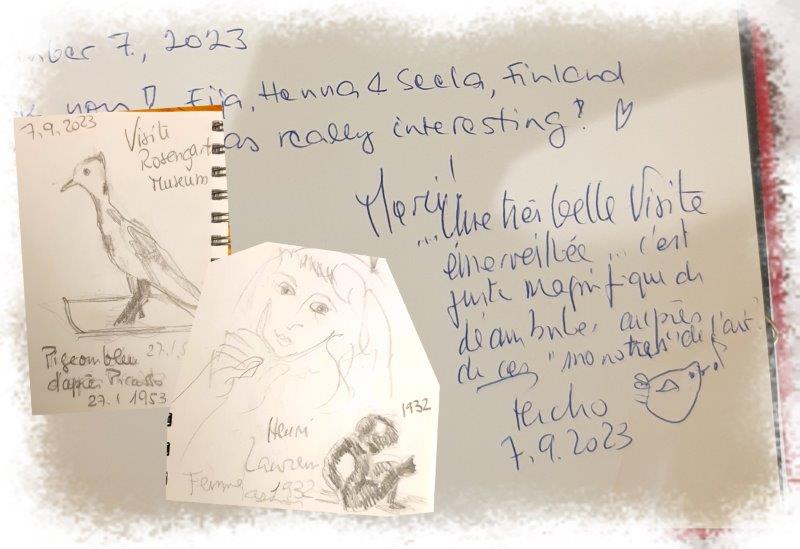 mber 7., 2023
you Eija, Henna & Seela, Finland
as really interesting! ♡
7.9.2023
Visite
Rosengart
Museum
Pigeon bleu 27.1.5
d'après Picasso
27.1 1953
1932
Henri
Lauren
Femme
1932
Merci!
... Une très belle Visite
émerveillée ... c'est
juste magnifique de
déambuler auprès
de ces "monstres" de l'art!
7.9.2023